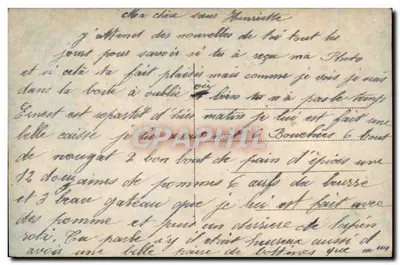 Ma chère sœur Henriette
j'attend des nouvelles de toi tout les
jours pour savoir si tu à reçu ma Photo
et si cela ta fait plaisir mais comme je vois je suis
dans la boite à oublié ou bien tu n'à pas le temps
Ernest est repartit d'hier matin je lui est fait une
belle caisse je lui 6 bout
de nougat 2 bon bout de pain d'épices une
12 douzaines de pommes 6 œufs du
et 3 beau gateau que je lui est fait avec
des pomme et puis un de lapin
roti. Tu parle s'y il était heureux aussi d
avoir une belle paire de bottines que